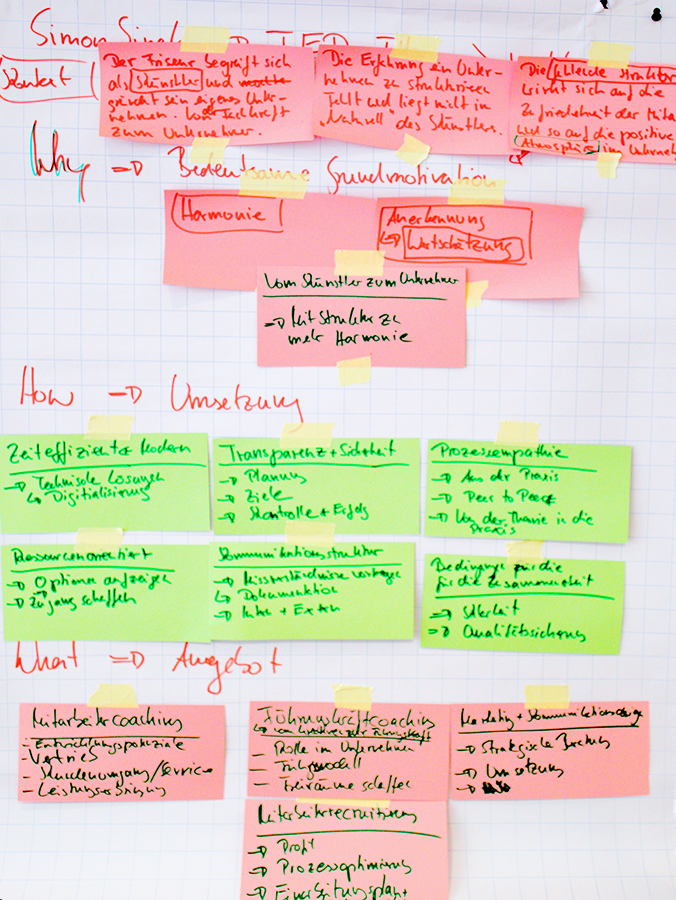 Simon
Kontext
Der Friseur begreift sich
als Künstler und
gründet sein eigenes Unter-
nehmen.
zum Unternehmer.
Die Erfahrung ein Unter-
nehmen zu strukturieren
fehlt und liegt nicht im
"Naturell" des Künstlers.
Die fehlende Struktur
wirkt sich auf die
Zufriedenheit der Mita
und so auf die positive
Atmosphäre im Unterneh
Why → Bedeutsame Grundmotivation
Harmonie
Anerkennung
↳ Wertschätzung
Vom Künstler zum Unternehmer
→ Mit Struktur zu
mehr Harmonie
How → Umsetzung
Zeiteffizient + Modern
→ Technische Lösungen
↳ Digitialisierung
Transparenz + Sicherheit
→ Planung
→ Ziele
→ Kontrolle + Erfolg
Prozessempathie
→ Aus der Praxis
→ Peer to Peer
→ Von der Theorie in die
Praxis
Ressourcenorientiert
→ Optionen aufzeigen
→ Zugang schaffen
Kommunikationsstruktur
→ Missverständnisse vorbeugen
↳ Dokumentation
→ Intern + Extern
Bedingungen für die
für die Zusammenarbeit
→ Klarheit
→ Qualitätssicherung
What → Angebot
Mitarbeitercoaching
- Entwicklungspotenziale
- Vertrieb
- Kundenumgang/Service
- Leistungserbringung
Führungskraftcoaching
↳ vom kreativen zur Führungskraft
– Rolle im Unternehmen
–
– Freiräume schaffen
Marketing + Kommunikationsdesign
→ Strategische Beratung
→ Umsetzung
Mitarbeiterrecruitierung
→ Profil
→ Prozessoptimierung
→ Einarbeitungsplan +